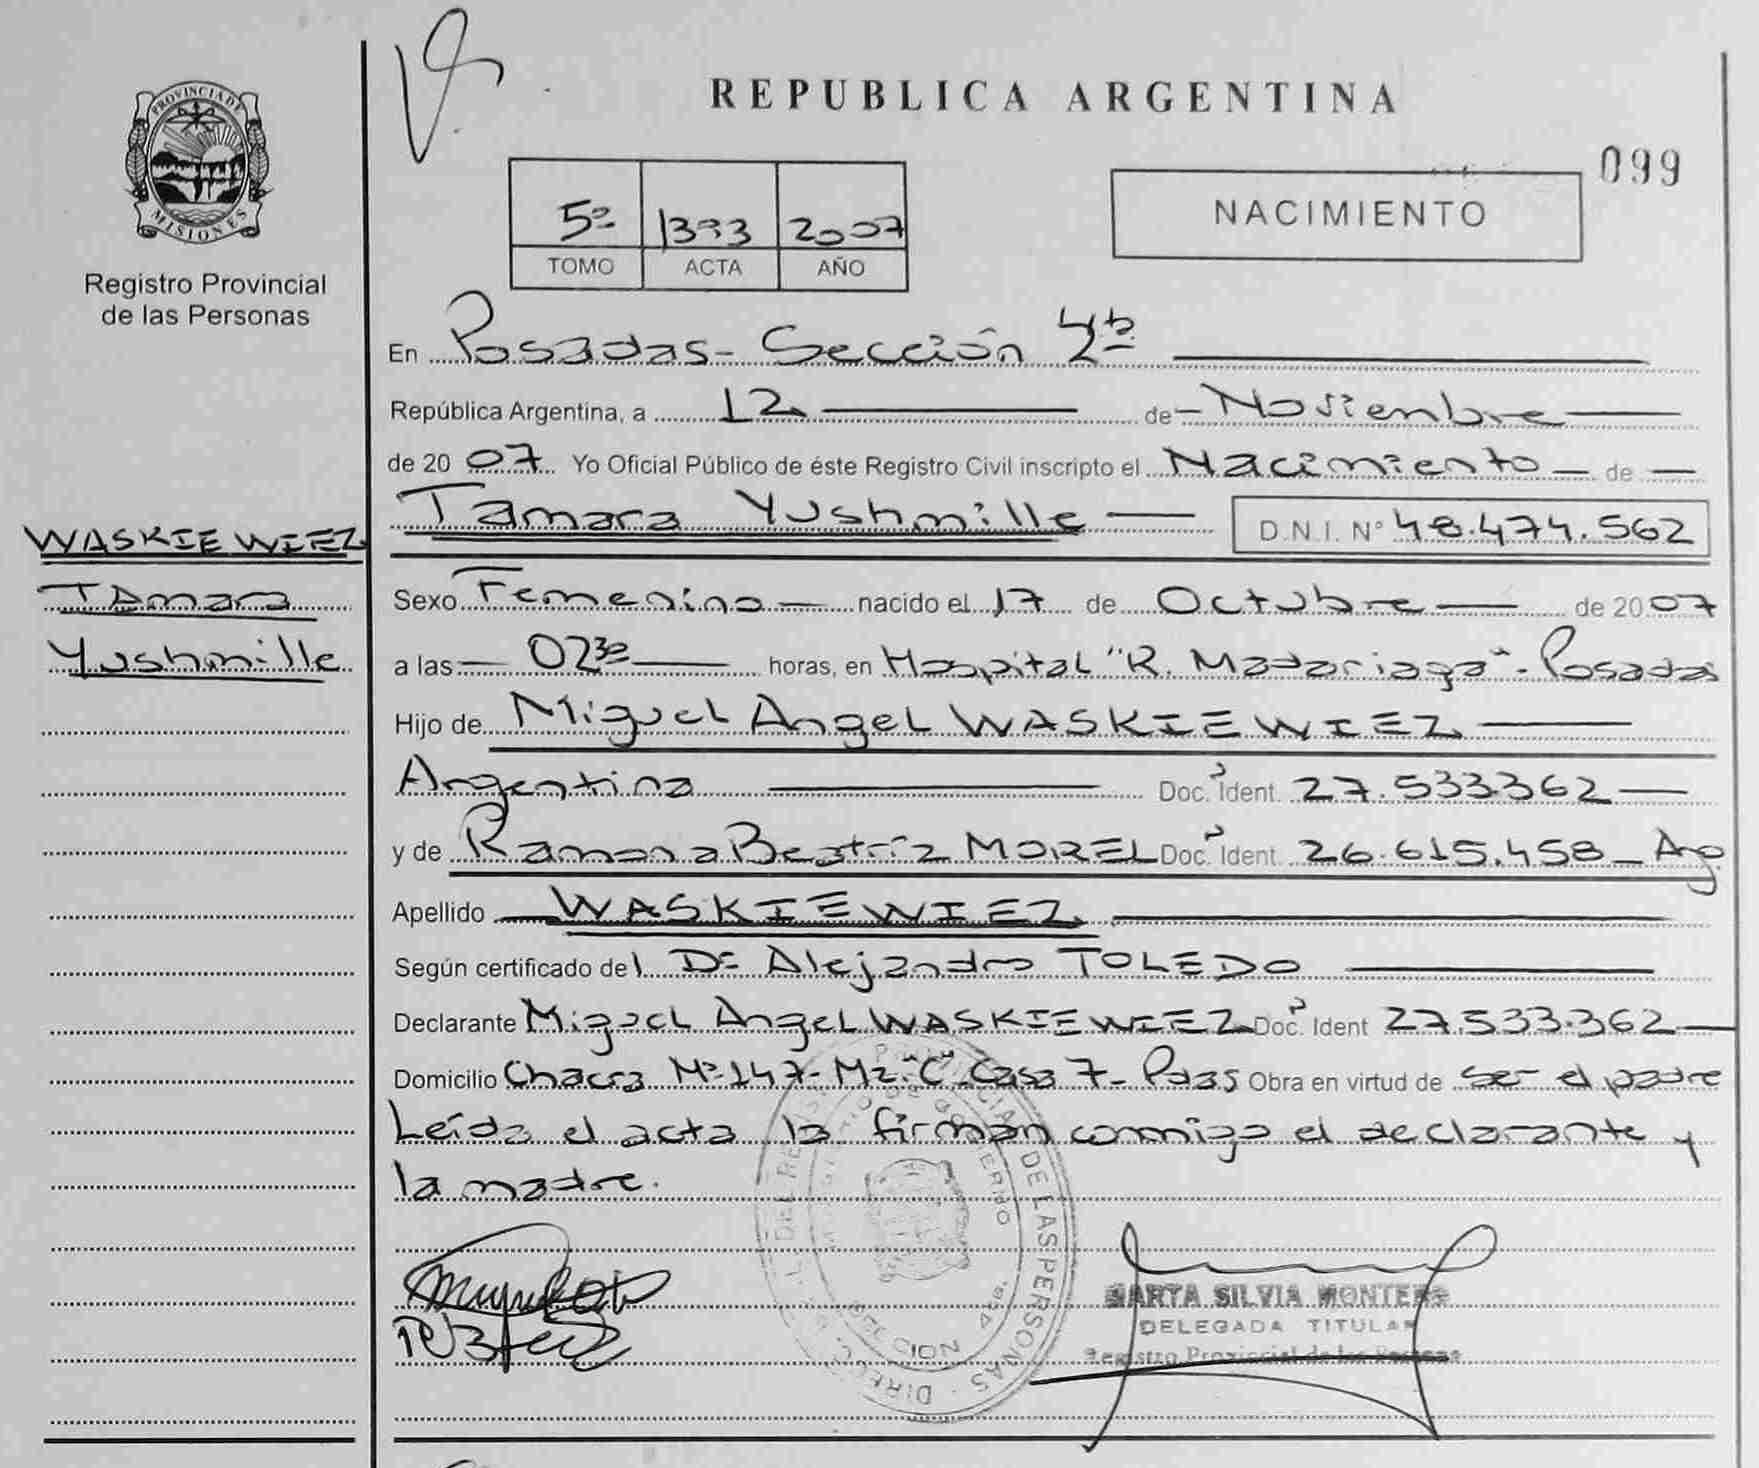 PROVINCIA DE
MISIONES
Registro Provincial
de las Personas
WASKIEWIEZ
Tamara
Yushmille
REPUBLICA ARGENTINA
099
5º 2007
TOMO ACTA AÑO
NACIMIENTO
En Posadas - Sección 4ta
República Argentina, a 12 de Noviembre
de 2007 Yo Oficial Público de éste Registro Civil inscripto el Nacimiento de
Tamara Yushmille D.N.I. Nº 48.474.562
Sexo Femenino nacido el 17 de Octubre de 2007
a las 02³⁰ horas, en Hospital "R. Madariaga" - Posadas
Hijo de Miguel Angel WASKIEWIEZ
Argentina Doc. Ident. 27.533.362
y de Ramona Beatríz MOREL Doc. Ident. 26.615.458 - Arg.
Apellido WASKIEWIEZ
Según certificado del Dr Alejandro TOLEDO
Declarante Miguel Angel WASKIEWIEZ Doc. Ident 27.533.362
Domicilio Chacra Nº 147 - Mz. "C" - Casa 7 - Pdas Obra en virtud de ser el padre
Leída el acta la firman conmigo el declarante y
la madre.
MARTA SILVIA MONTERO
DELEGADA TITULAR
Registro Provincial de las Personas